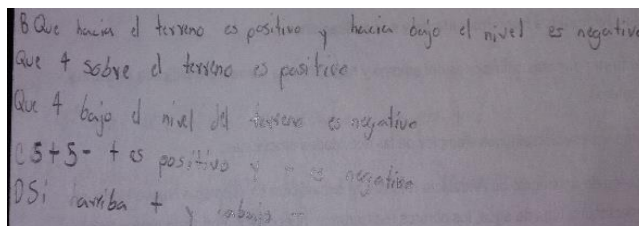 B Que hacia el terreno es positivo y hacia bajo el nivel es negativo
Que 4 sobre el terreno es positivo
Que 4 bajo el nivel del terreno es negativo
C 5+5- + es positivo y - es negativo
D Si arriba + y abajo -